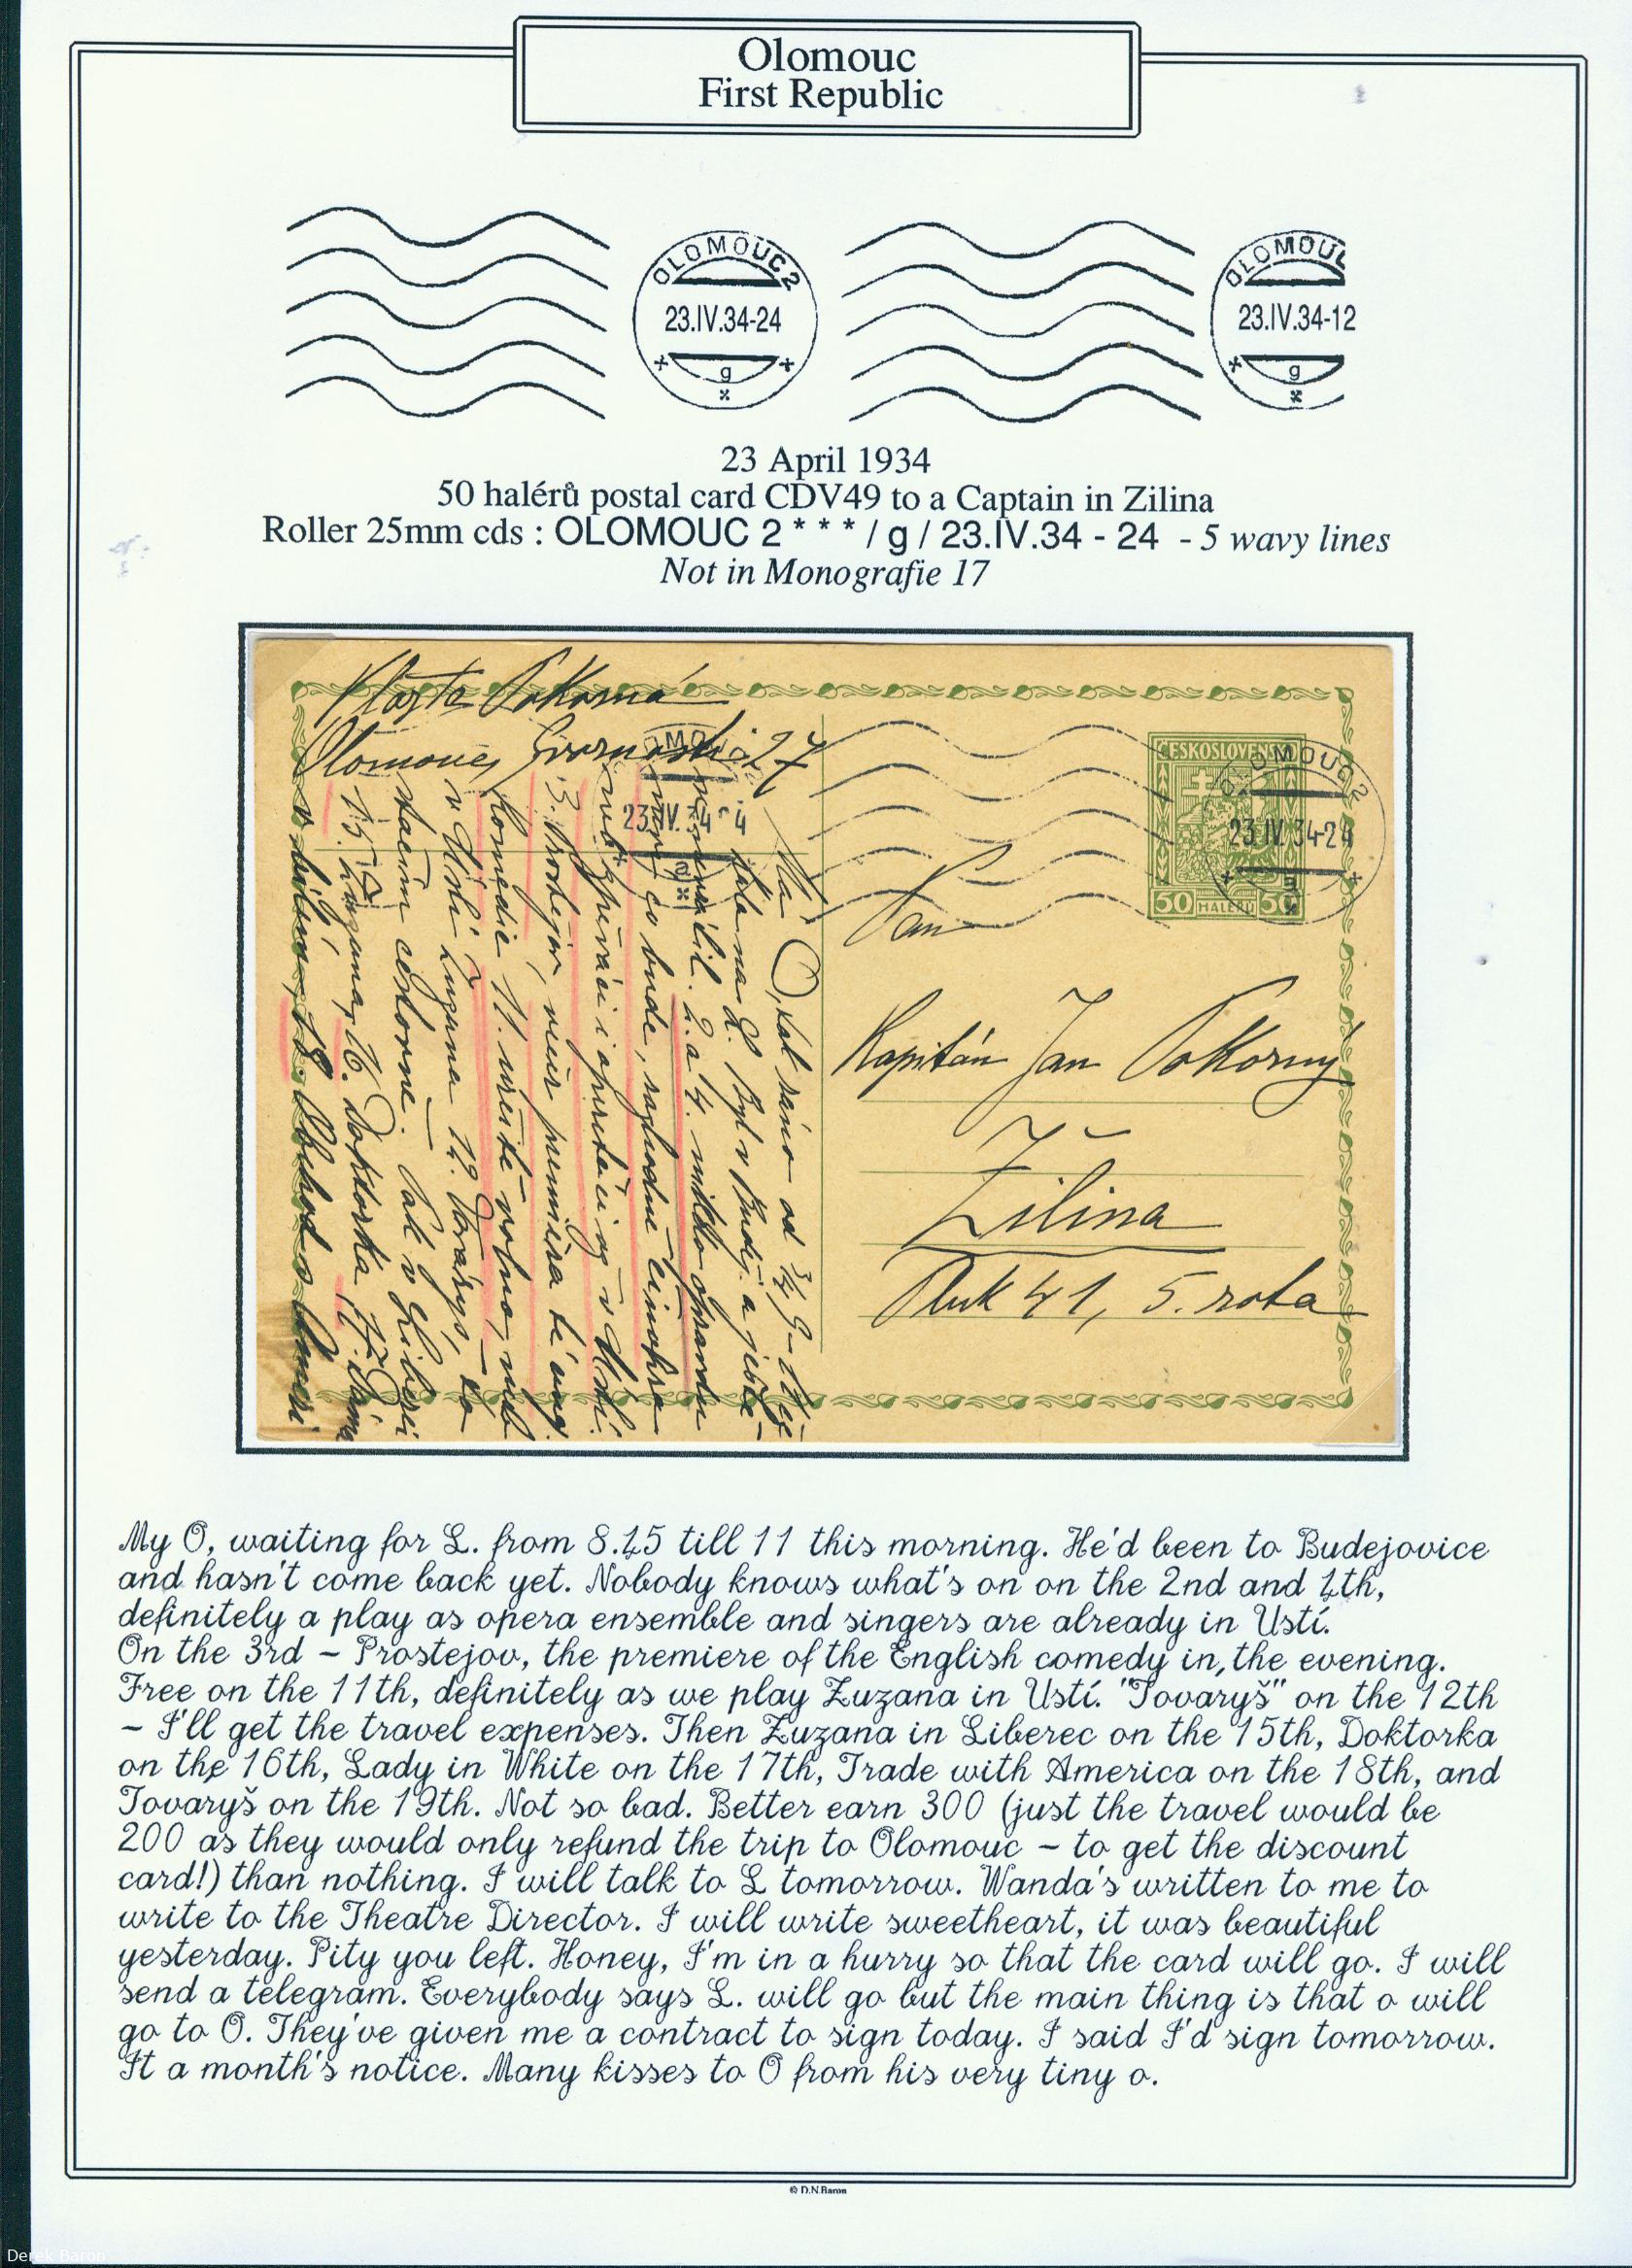 Olomouc
First Republic
OLOMOUC 2
23.IV.34-24
g
OLOMOUC
23.IV.34-12
g
23 April 1934
50 halérů postal card CDV49 to a Captain in Zilina
Roller 25mm cds : OLOMOUC 2 * * * / g / 23.IV.34 - 24 - 5 wavy lines
Not in Monografie 17
Vlasta Pokorná
Olomouc, 27
ČESKOSLOVENSKO
50 HALÉŘŮ 50
OLOMOUC 2
23.IV.34-24
Pan
Kapitán Jan Pokorný
Žilina
Pluk 41, 5. rota
Má O, tak ráno od 3/4 9-11
na L. Byl v Buděj. a ještě
2. a 4. nikdo
co bude, rozhodně činohra
zpěváci i v Ústí.
3. Prostějov, večer premiéra té ang.
komedie. 11. určitě volno, neb
v Ústí Zuzana 12. Tovaryš,
Pak v Liberci
15. Zuzana, 16. Doktorka, 17. Dáma
v bílém, 18. Obchod s Ameri
My O, waiting for L. from 8.45 till 11 this morning. He'd been to Budejovice
and hasn't come back yet. Nobody knows what's on on the 2nd and 4th,
definitely a play as opera ensemble and singers are already in Ustí.
On the 3rd – Prostejov, the premiere of the English comedy in, the evening.
Free on the 11th, definitely as we play Zuzana in Ustí. "Tovaryš" on the 12th
– I'll get the travel expenses. Then Zuzana in Liberec on the 15th, Doktorka
on the 16th, Lady in White on the 17th, Trade with America on the 18th, and
Tovaryš on the 19th. Not so bad. Better earn 300 (just the travel would be
200 as they would only refund the trip to Olomouc – to get the discount
card!) than nothing. I will talk to L tomorrow. Wanda's written to me to
write to the Theatre Director. I will write sweetheart, it was beautiful
yesterday. Pity you left. Honey, I'm in a hurry so that the card will go. I will
send a telegram. Everybody says L. will go but the main thing is that o will
go to O. They've given me a contract to sign today. I said I'd sign tomorrow.
It a month's notice. Many kisses to O from his very tiny o.
© D.N.Baron
Derek Baron